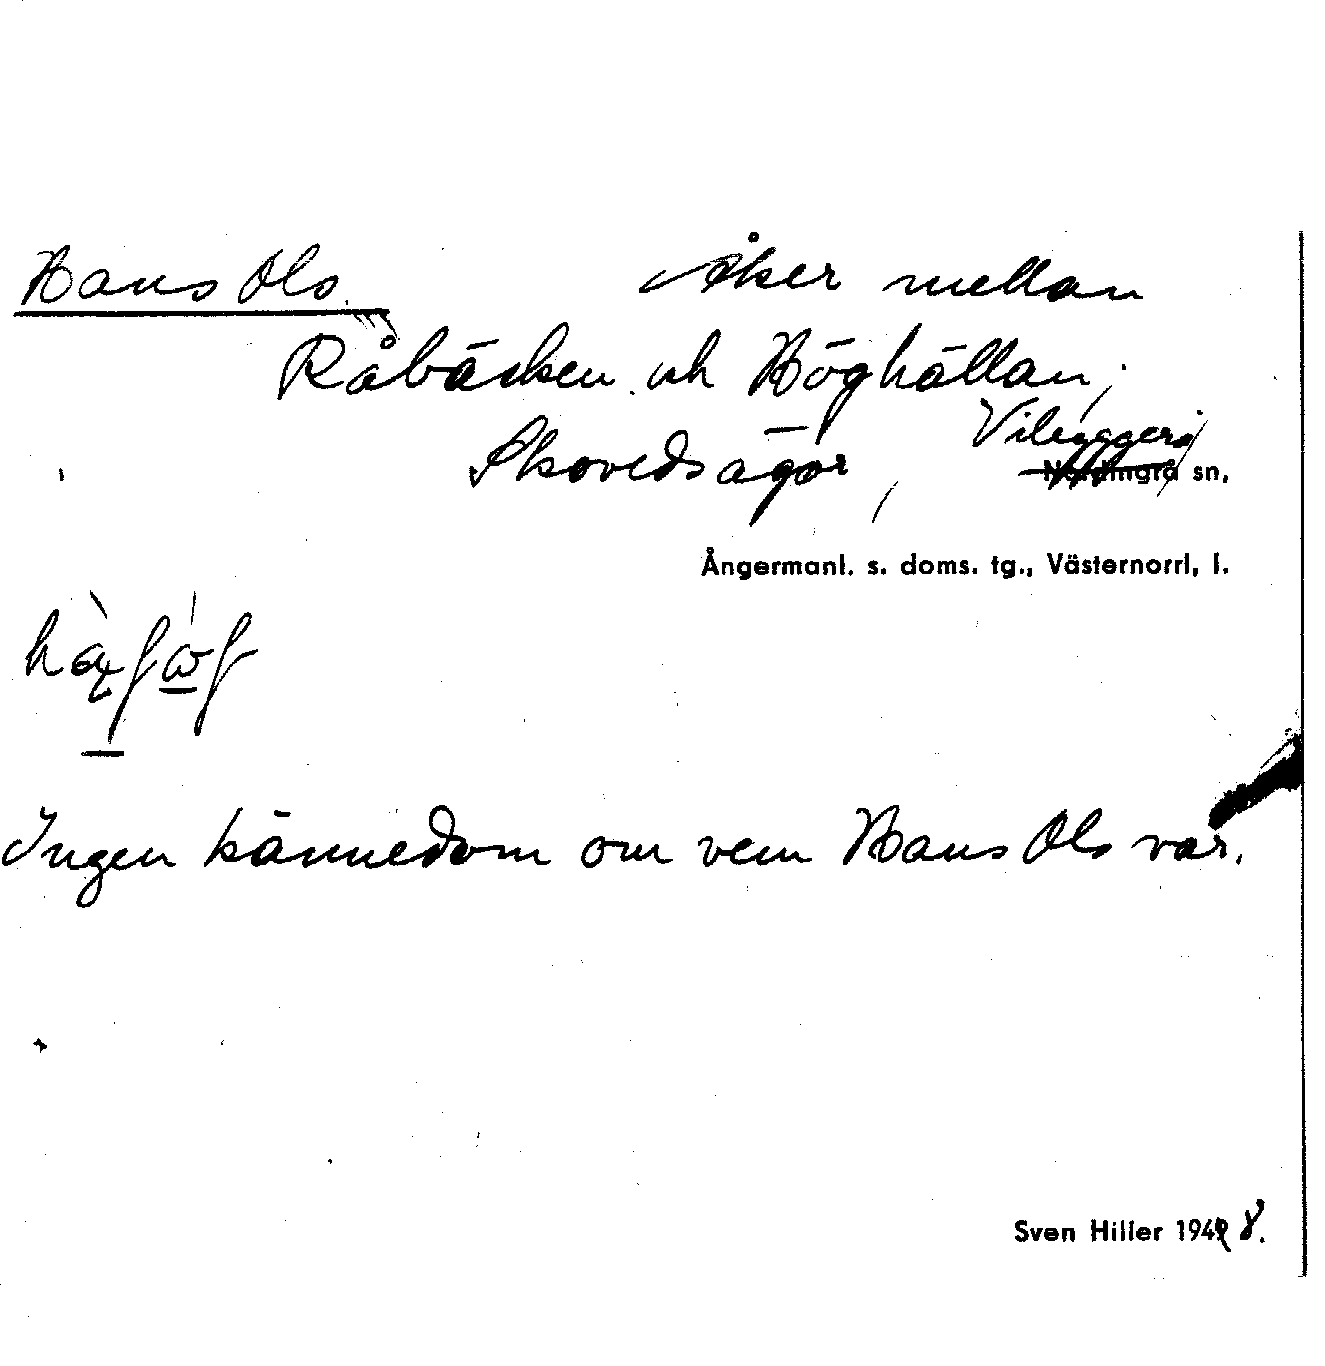 Hans Ols Åker mellan
Råbäcken och Höghällan,
Skovedsägor, Vibyggerå
Nordingrå sn,
Ångermanl. s. doms. tg., Västernorrl, l.
Ingen kännedom om vem Hans Ols var.
Sven Hiller 1948.